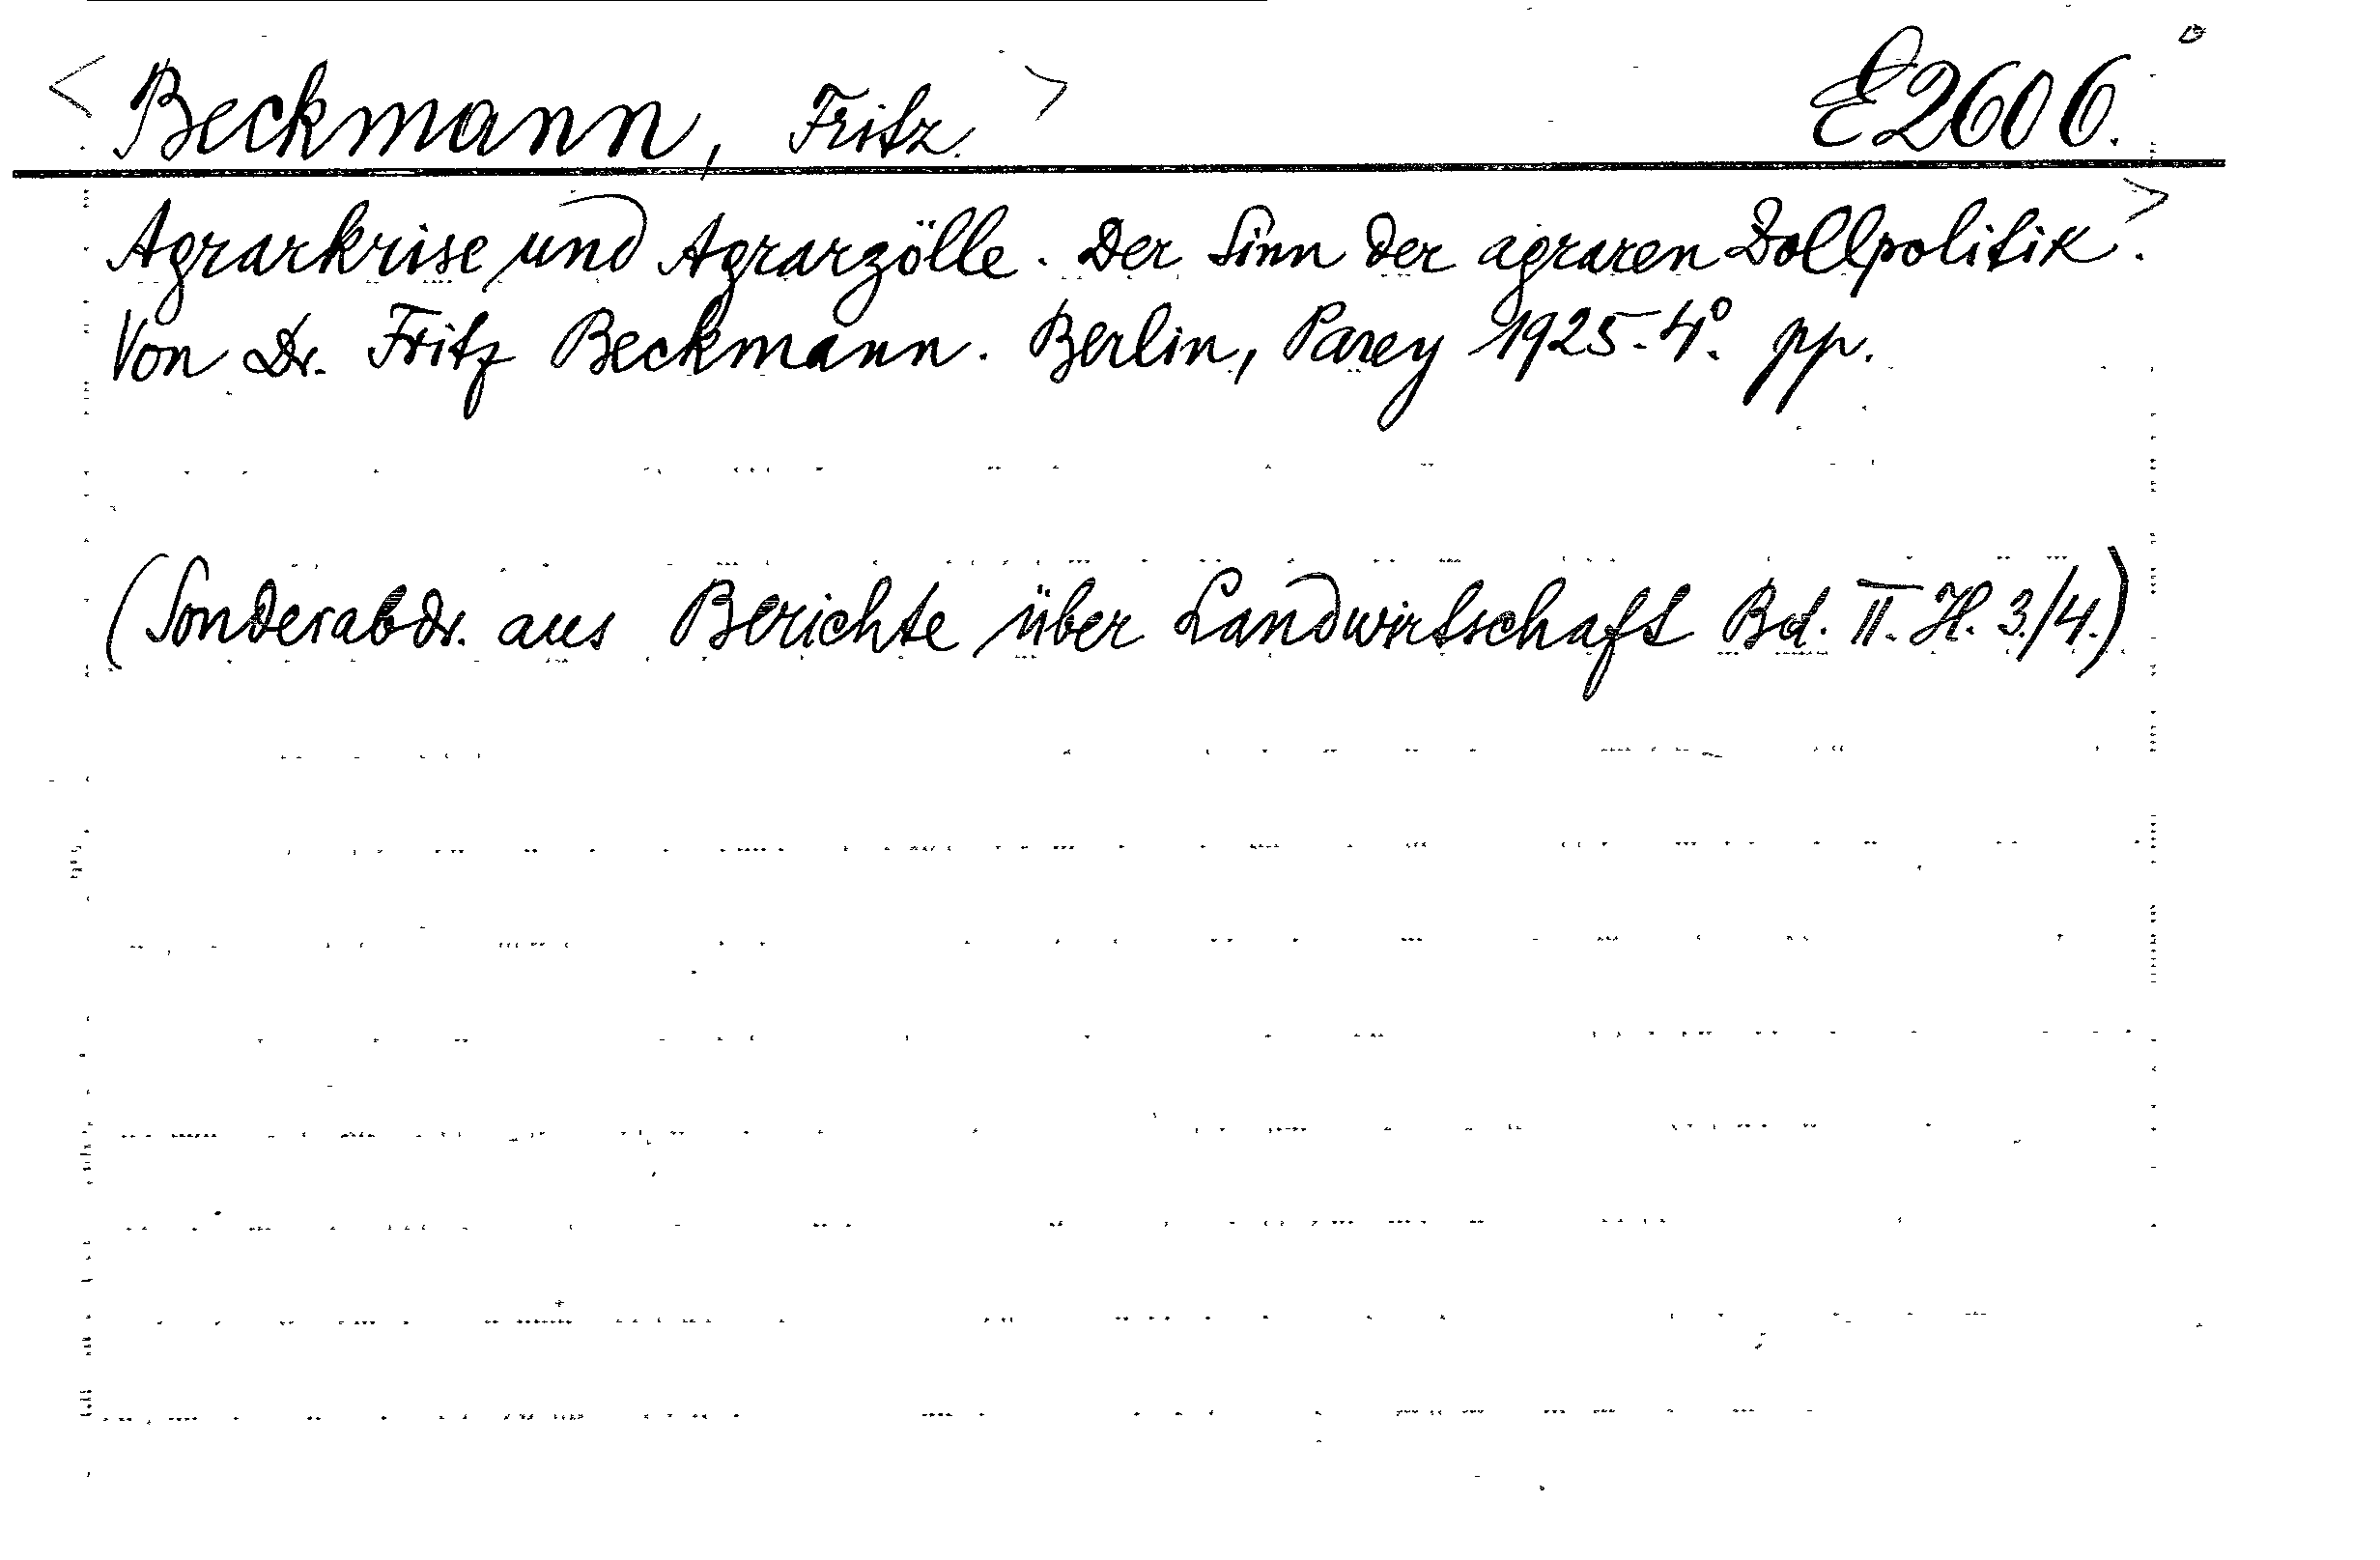 < Beckmann, Fritz. > E2606.
Agrarkrise und Agrarzölle. Der Sinn der agraren Dollpolitik >.
Von Dr. Fritz Beckmann. Berlin, Parey 1925. 4°. pp.
(Sonderabdr. aus Berichte über Landwirtschaft Bd. II. H. 3./4.)